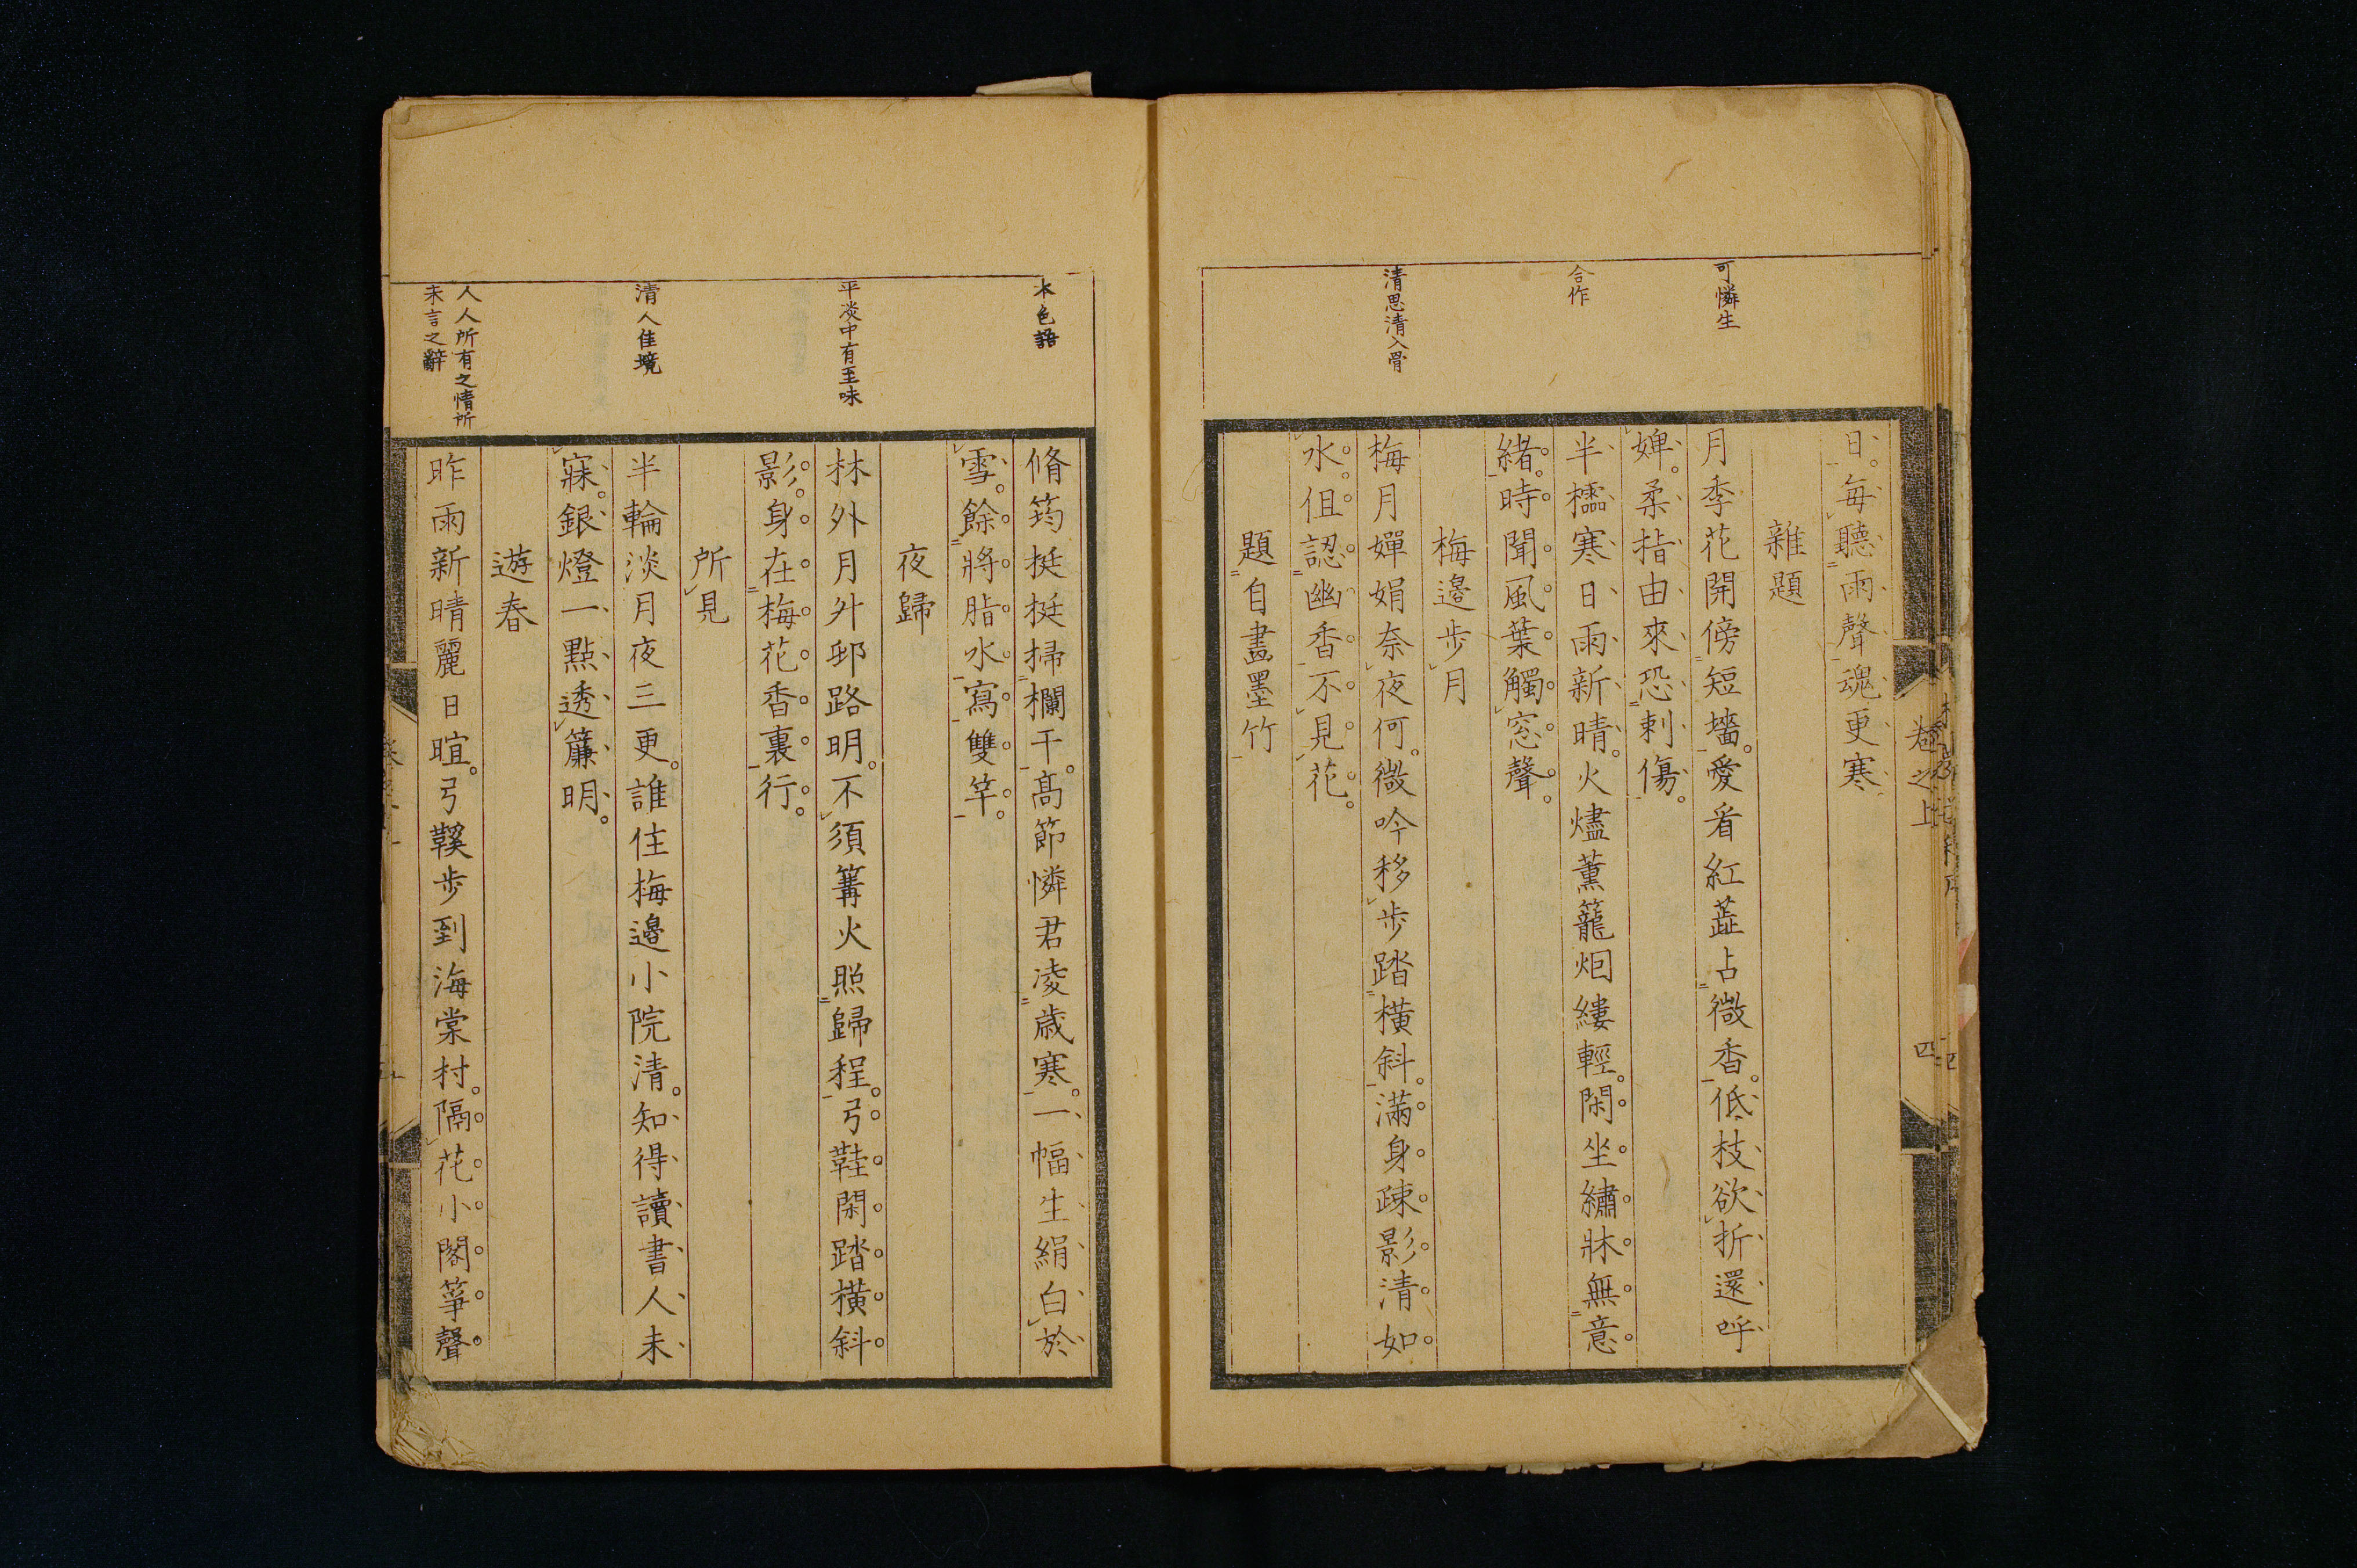 可憐生
合作
清思清入骨
日。每聽雨聲魂更寒
雜題
月季花開傍短墻。愛看紅蕋占微香。低枝欲折還呼
婢。柔指由來恐刺傷。
半櫺寒日雨新晴。火燼薰籠烟縷輕。閑坐繡牀無意
緒。時聞風葉觸窓聲。
梅邊步月
梅月嬋娟奈夜何。微吟移步踏橫斜。滿身疎影清如
水。但認幽香不見花。
題自畫墨竹
卷之上
四
本色語
平淡中有至味
清人佳境
人人所有之情所
未言之辭
脩筠挺挺掃欄干。高節憐君凌歲寒。一幅生絹白於
雪。餘將脂水寫雙竿。
夜歸
林外月升邨路明。不須篝火照歸程。弓鞋閑踏橫斜
影。身在梅花香裏行。
所見
半輪淡月夜三更。誰住梅邊小院清。知得讀書人未
寐。銀燈一點透簾明。
遊春
昨雨新晴麗日暄。弓鞵步到海棠村。隔花小閣箏聲